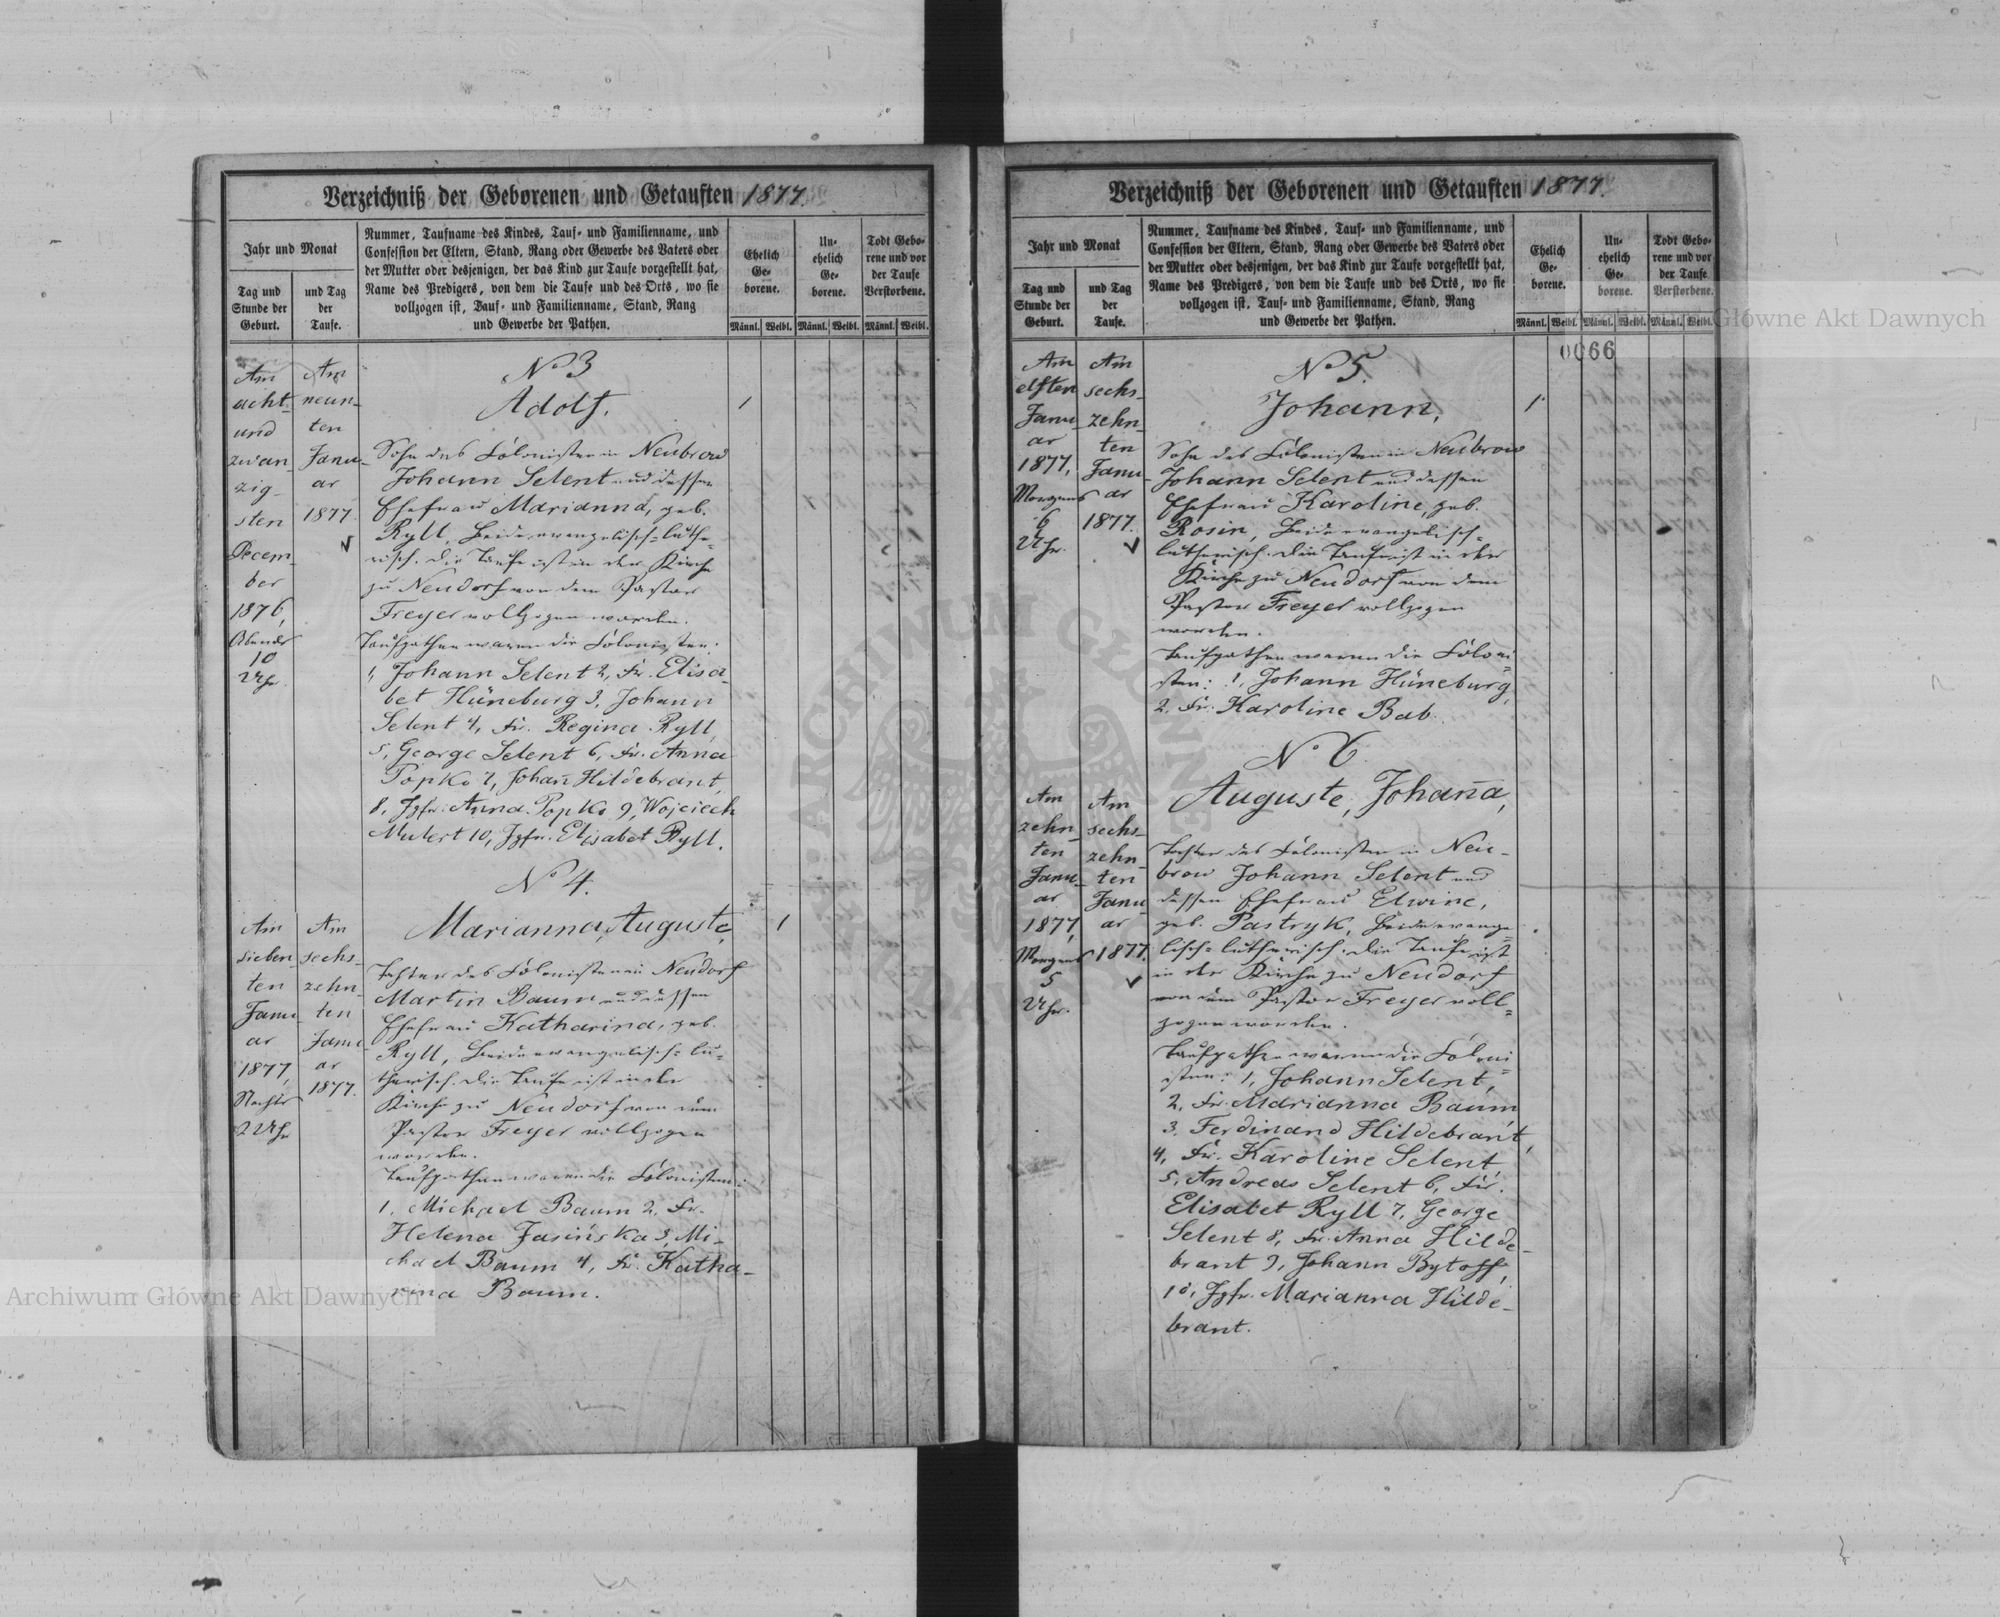 Verzeichniß der Geborenen und Getauften 1877.
Jahr und Monat
Tag und
Stunde der
Geburt.
und Tag
der
Taufe.
Nummer, Taufname des Kindes, Tauf- und Familienname, und
Confession der Eltern, Stand, Rang oder Gewerbe des Vaters oder
der Mutter oder desjenigen, der das Kind zur Taufe vorgestellt hat,
Name des Predigers, von dem die Taufe und des Orts, wo sie
vollzogen ist, Tauf- und Familienname, Stand, Rang
und Gewerbe der Pathen.
Ehelich
Ge-
borene.
Un-
ehelich
Ge-
borene.
Todt Gebo-
rene und vor
der Taufe
Verstorbene.
Männl. Weibl. Männl. Weibl. Männl. Weibl.
Am
acht-
und
zwan-
zig-
sten
Decem-
ber
1876,
Abends
10
Uhr.
Am
neun-
ten
Janu-
ar
1877.
No 3
Adolf.
1
Sohn des Colonisten in Neubrow
Johann Selent und dessen
Ehefrau Marianna, geb.
Ryll, Beide evangelisch-luthe-
risch. Die Taufe ist in der Kirche
zu Neudorf von dem Pastor
Freyer vollzogen worden.
Taufpathen waren die Colonisten:
1, Johann Selent 2, Fr. Elisa-
bet Hüneburg 3, Johann
Selent 4, Fr. Regina Ryll,
5, George Selent 6, Fr. Anna
Popko 7, Johañ Hildebrant,
8, Jgfr. Anna Popko 9, Wojciech
Mulert 10, Jgfr. Elisabet Ryll.
Am
sieben-
ten
Janu-
ar
1877,
Nachts
2 Uhr
Am
sechs-
zehn-
ten
Janu-
ar
1877.
No 4.
Marianna, Auguste,
1
Tochter des Colonisten in Neudorf
Martin Baum und dessen
Ehefrau Katharina, geb.
Ryll, Beide evangelisch-lu-
therisch. Die Taufe ist in der
Kirche zu Neudorf von dem
Pastor Freyer vollzogen
worden.
Taufpathen waren die Colonisten:
1, Michael Baum 2, Fr.
Helena Jasińska 3, Mi-
chael Baum 4, Fr. Katha-
rina Baum.
Verzeichniß der Geborenen und Getauften 1877.
Jahr und Monat
Tag und
Stunde der
Geburt.
und Tag
der
Taufe.
Nummer, Taufname des Kindes, Tauf- und Familienname, und
Confession der Eltern, Stand, Rang oder Gewerbe des Vaters oder
der Mutter oder desjenigen, der das Kind zur Taufe vorgestellt hat,
Name des Predigers, von dem die Taufe und des Orts, wo sie
vollzogen ist, Tauf- und Familienname, Stand, Rang
und Gewerbe der Pathen.
Ehelich
Ge-
borene.
Un-
ehelich
Ge-
borene.
Todt Gebo-
rene und vor
der Taufe
Verstorbene.
Männl. Weibl. Männl. Weibl. Männl. Weibl.
0066
Am
elften
Janu-
ar
1877,
Morgens
6
Uhr.
Am
sechs-
zehn-
ten
Janu-
ar
1877.
No 5.
Johann,
1
Sohn des Colonisten in Neubrow
Johann Selent und dessen
Ehefrau Karoline, geb.
Rosin, Beide evangelisch-
lutherisch. Die Taufe ist in der
Kirche zu Neudorf von dem
Pastor Freyer vollzogen
worden.
Taufpathen waren die Coloni-
sten: 1, Johann Hüneburg,
2, Fr. Karoline Bab.
Am
zehn-
ten
Janu-
ar
1877,
Morgens
5
Uhr.
Am
sechs-
zehn-
ten
Janu-
ar
1877.
No 6.
Auguste, Johaña,
Tochter des Colonisten in Neu-
brow Johann Selent und
dessen Ehefrau Elwine,
geb. Pastryk, Beide evange-
lisch-lutherisch. Die Taufe ist
in der Kirche zu Neudorf
von dem Pastor Freyer voll-
zogen worden.
Taufpathen waren die Coloni-
sten: 1, Johann Selent,
2, Fr. Marianna Baum
3, Ferdinand Hildebrant,
4, Fr. Karoline Selent,
5, Andreas Selent 6, Fr.
Elisabet Ryll 7, George
Selent 8, Fr. Anna Hilde-
brant 9, Johann Bytoff,
10, Jgfr. Marianna Hilde-
brant.
Archiwum Główne Akt Dawnych
Archiwum Główne Akt Dawnych